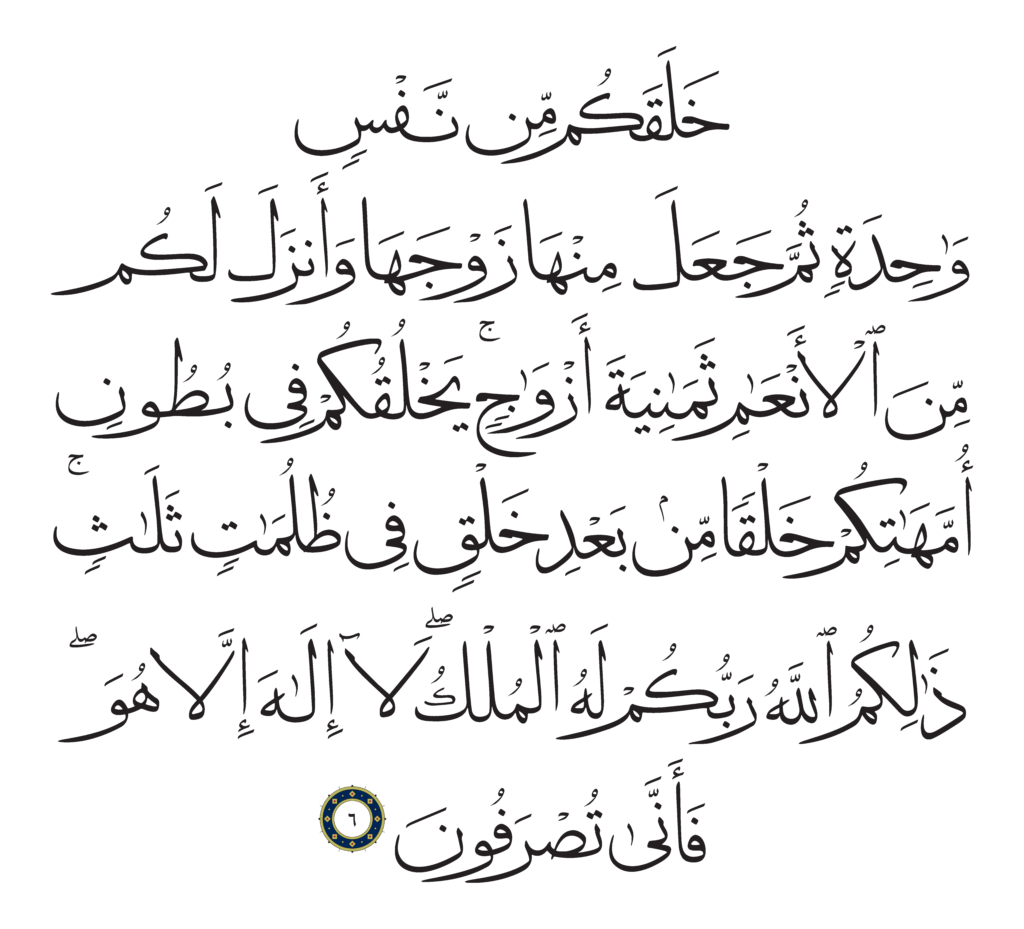 خَلَقَكُم مِّن نَّفْسٍ
وَٰحِدَةٍ ثُمَّ جَعَلَ مِنْهَا زَوْجَهَا وَأَنزَلَ لَكُم
مِّنَ ٱلْأَنْعَٰمِ ثَمَٰنِيَةَ أَزْوَٰجٍ ۚ يَخْلُقُكُمْ فِى بُطُونِ
أُمَّهَٰتِكُمْ خَلْقًا مِّنۢ بَعْدِ خَلْقٍ فِى ظُلُمَٰتٍ ثَلَٰثٍ ۚ
ذَٰلِكُمُ ٱللَّهُ رَبُّكُمْ لَهُ ٱلْمُلْكُ ۖ لَآ إِلَٰهَ إِلَّا هُوَ ۖ
فَأَنَّىٰ تُصْرَفُونَ ٦